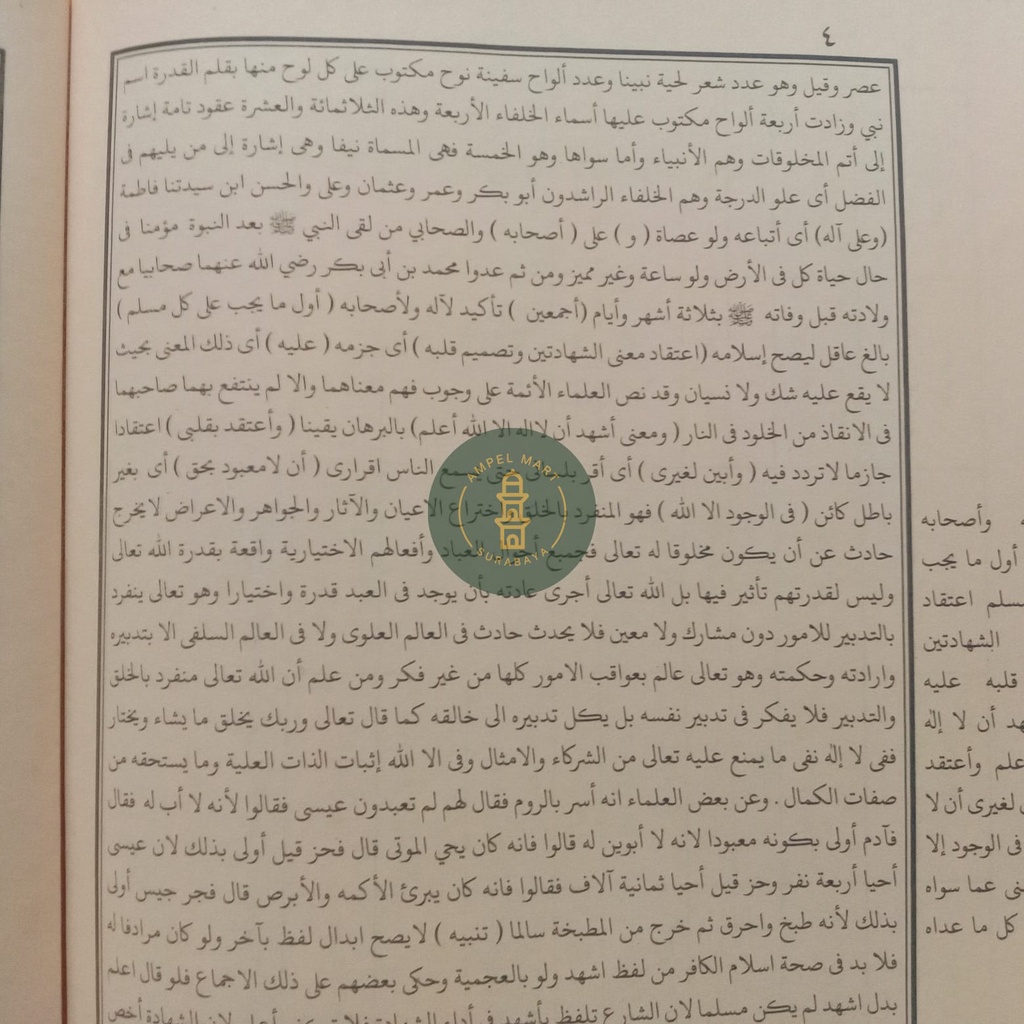 ٤
عصر وقيل وهو عدد شعر لحية نبينا وعدد ألواح سفينة نوح مكتوب على كل لوح منها بقلم القدرة اسم
نبي وزادت أربعة ألواح مكتوب عليها أسماء الخلفاء الأربعة وهذه الثلاثمائة والعشرة عقود تامة إشارة
إلى أتم المخلوقات وهم الأنبياء وأما سواها وهو الخمسة فهى المسماة نيفا وهى إشارة إلى من يليهم فى
الفضل أى علو الدرجة وهم الخلفاء الراشدون أبو بكر وعمر وعثمان وعلى والحسن ابن سيدتنا فاطمة
(وعلى آله) أى أتباعه ولو عصاة ( و ) على ( أصحابه ) والصحابي من لقى النبي ﷺ بعد النبوة مؤمنا فى
حال حياة كل فى الأرض ولو ساعة وغير مميز ومن ثم عدوا محمد بن أبى بكر رضي الله عنهما صحابيا مع
ولادته قبل وفاته ﷺ بثلاثة أشهر وأيام (أجمعين ) تأكيد لآله ولأصحابه ( أول ما يجب على كل مسلم )
بالغ عاقل ليصح إسلامه (اعتقاد معنى الشهادتين وتصميم قلبه ) أى جزمه ( عليه ) أى ذلك المعنى بحيث
لا يقع عليه شك ولا نسيان وقد نص العلماء الأئمة على وجوب فهم معناهما والا لم ينتفع بهما صاحبهما
فى الانقاذ من الخلود فى النار ( ومعنى أشهد أن لااله الا الله أعلم) بالبرهان يقينا ( وأعتقد بقلبى ) اعتقادا
جازما لاتردد فيه ( وأبين لغيرى ) أى أقر الناس اقرارى ( أن لامعبود بحق ) أى بغير
باطل كائن ( فى الوجود الا الله ) فهو المنفرد بالخلق الاعيان والآثار والجواهر والاعراض لايخرج
حادث عن أن يكون مخلوقا له تعالى فجميع العباد وأفعالهم الاختيارية واقعة بقدرة الله تعالى
وليس لقدرتهم تأثير فيها بل الله تعالى أجرى عادته بأن يوجد فى العبد قدرة واختيارا وهو تعالى ينفرد
بالتدبير للامور دون مشارك ولا معين فلا يحدث حادث فى العالم العلوى ولا فى العالم السفلى الا بتدبيره
وارادته وحكمته وهو تعالى عالم بعواقب الامور كلها من غير فكر ومن علم أن الله تعالى منفرد بالخلق
والتدبير فلا يفكر فى تدبير نفسه بل يكل تدبيره الى خالقه كما قال تعالى وربك يخلق ما يشاء ويختار
ففى لا إله نفى ما يمنع عليه تعالى من الشركاء والامثال وفى الا الله إثبات الذات العلية وما يستحقه من
صفات الكمال . وعن بعض العلماء انه أسر بالروم فقال لهم لم تعبدون عيسى فقالوا لأنه لا أب له فقال
فآدم أولى بكونه معبودا لانه لا أبوين له قالوا فانه كان يحي الموتى قال فحز قيل أولى بذلك لان عيسى
أحيا أربعة نفر وحز قيل أحيا ثمانية آلاف فقالوا فانه كان يبرئ الأكمه والأبرص قال فجر جيس أولى
بذلك لأنه طبخ واحرق ثم خرج من المطبخة سالما ( تنبيه ) لايصح ابدال لفظ بآخر ولو كان مرادفا له
فلا بد فى صحة اسلام الكافر من لفظ اشهد ولو بالعجمية وحكى بعضهم على ذلك الاجماع فلو قال اعلم
بدل اشهد لم يكن مسلما لان الشارع تلفظ بأشهد فى أداء الشهادة
وأصحابه
أول ما يجب
اعتقاد
الشهادتين
قلبه عليه
أن لا إله
وأعتقد
لغيرى أن لا
فى الوجود إلا
عما سواه
كل ما عداه
AMPEL MART
SURABAYA